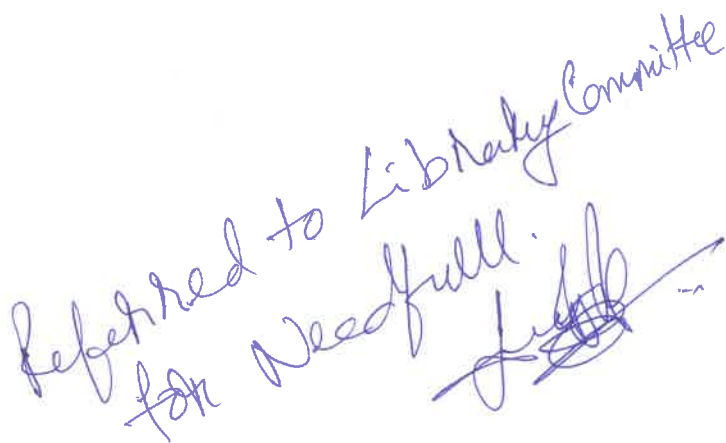 Referred to Library Committee
for Needfull.